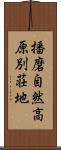 播磨自然高
原別荘地